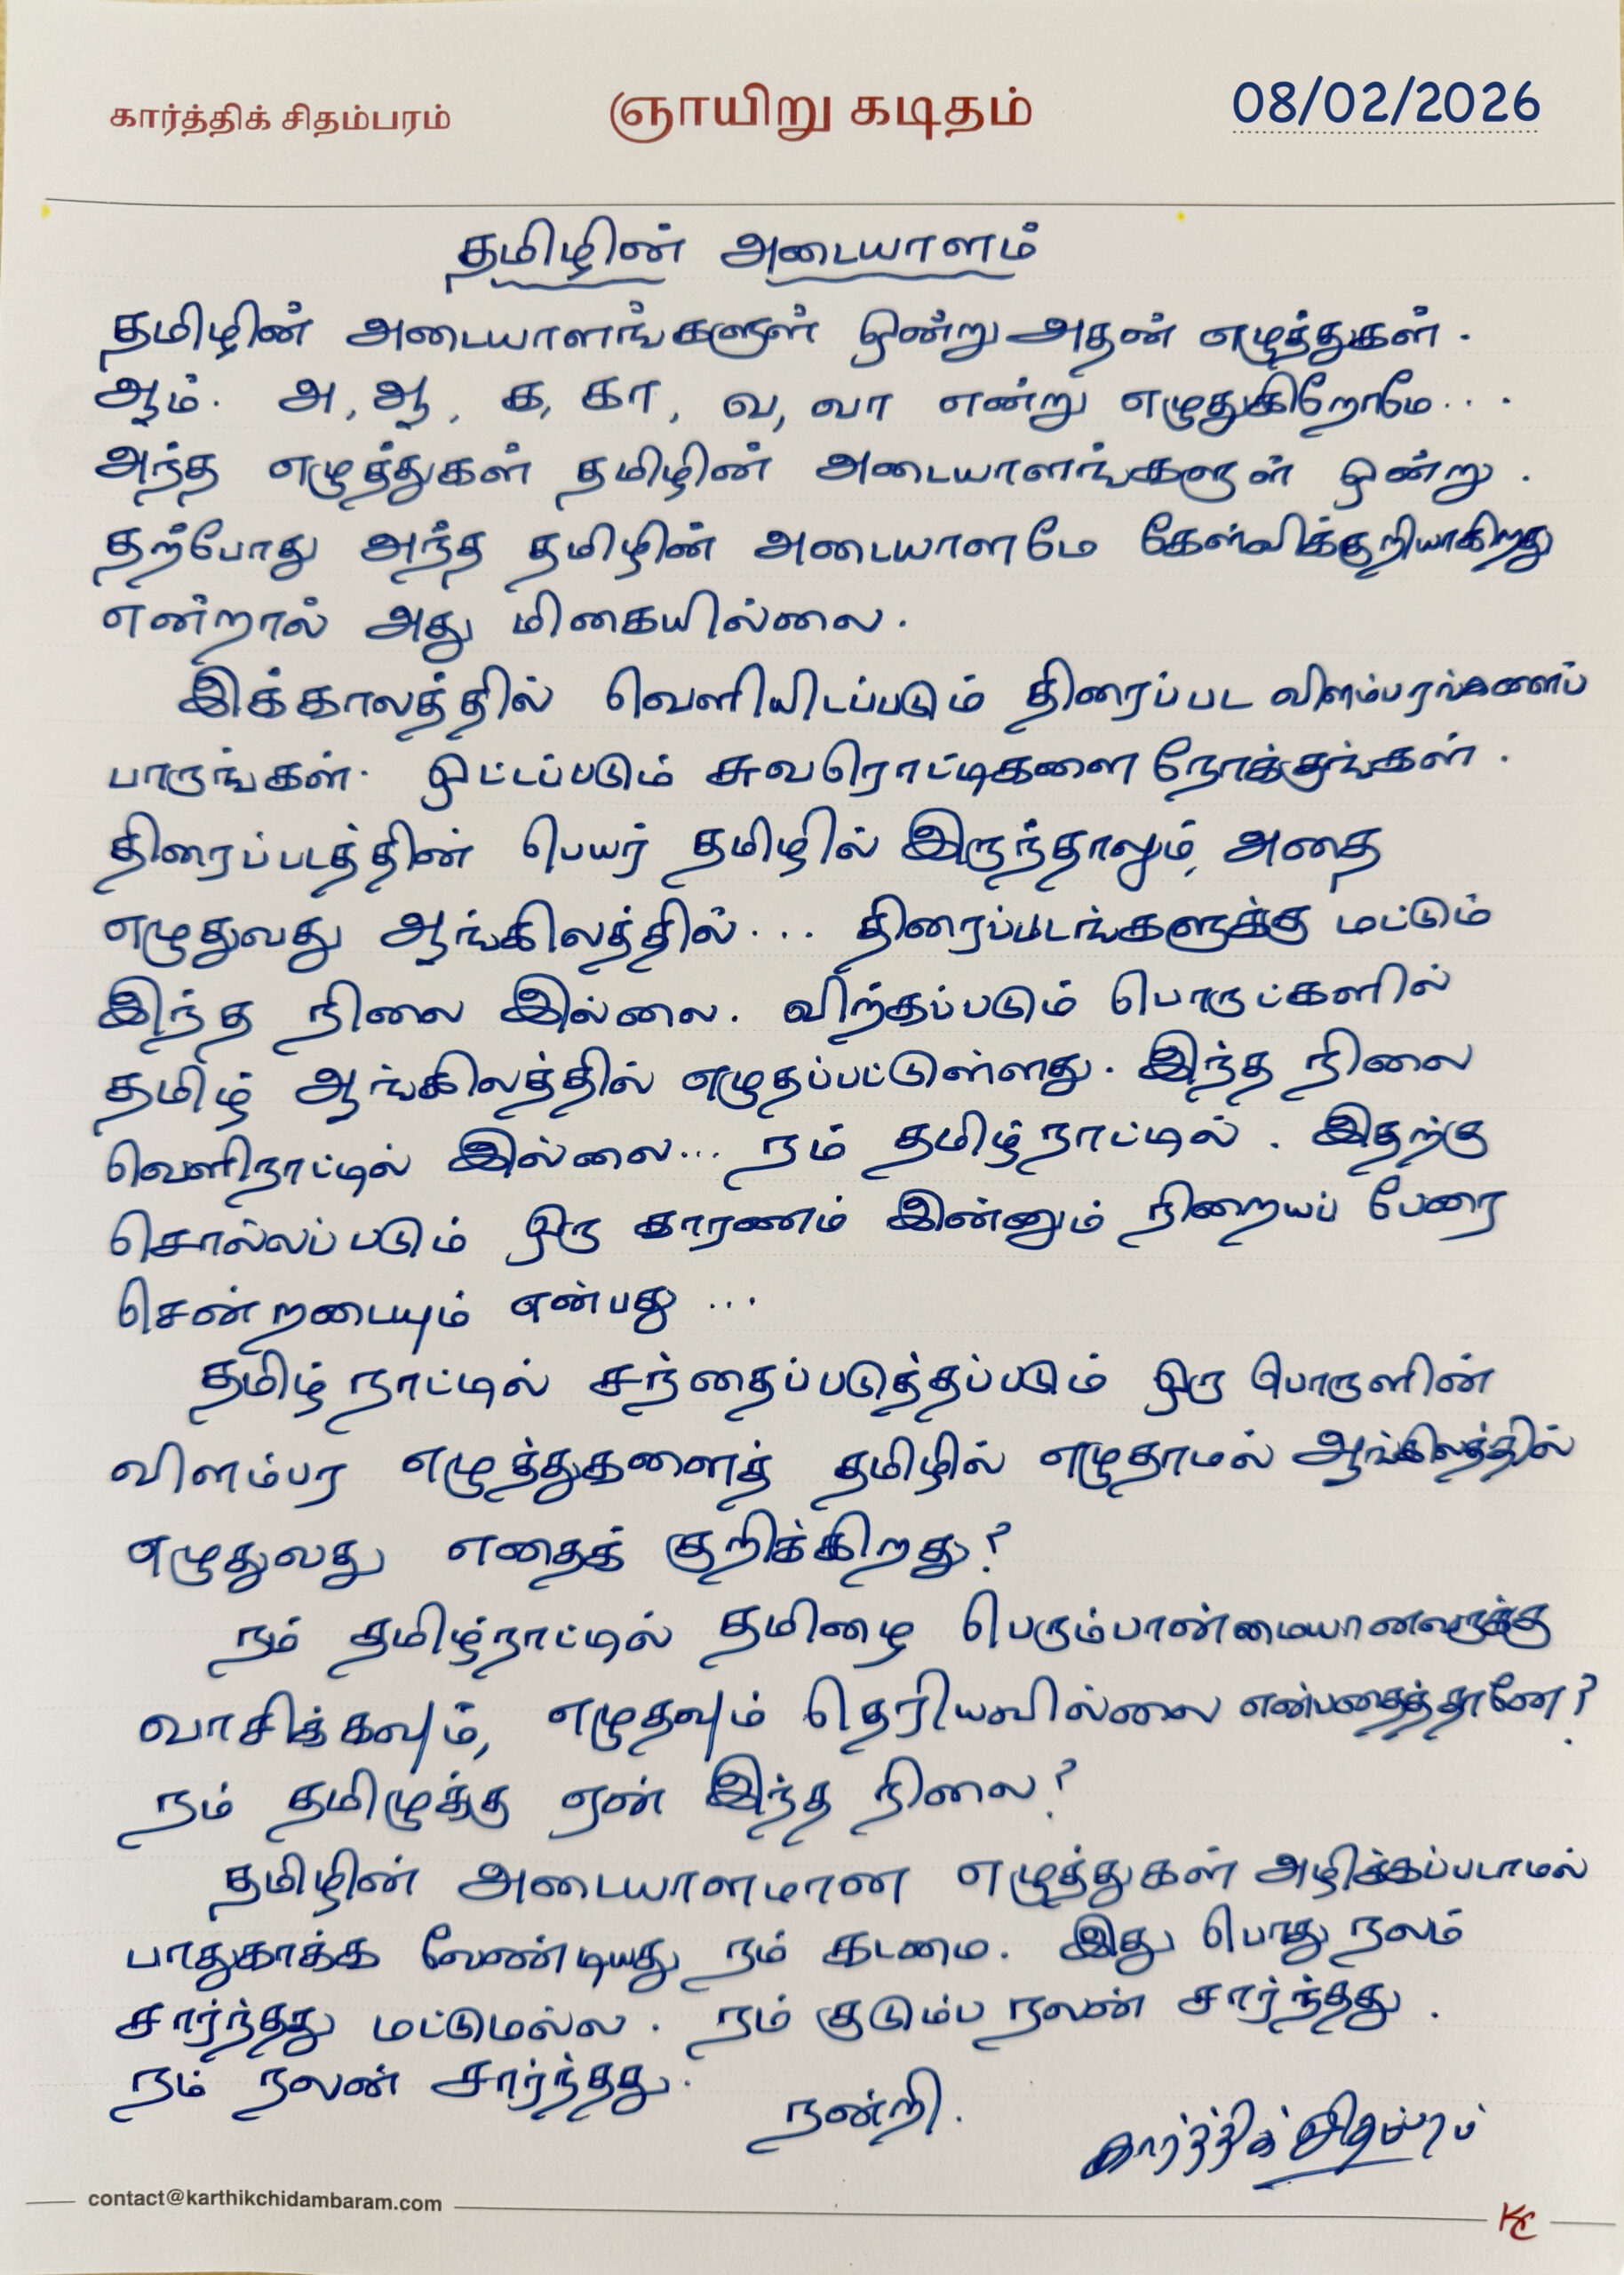 கார்த்திக் சிதம்பரம்
ஞாயிறு கடிதம்
08/02/2026
தமிழின் அடையாளம்
தமிழின் அடையாளங்களுள் ஒன்று அதன் எழுத்துகள்.
ஆம். அ, ஆ, க, கா, வ, வா என்று எழுதுகிறோமே...
அந்த எழுத்துகள் தமிழின் அடையாளங்களுள் ஒன்று.
தற்போது அந்த தமிழின் அடையாளமே கேள்விக்குறியாகிறது
என்றால் அது மிகையில்லை.
இக்காலத்தில் வெளியிடப்படும் திரைப்பட விளம்பரங்களைப்
பாருங்கள். ஒட்டப்படும் சுவரொட்டிகளை நோக்குங்கள்.
திரைப்படத்தின் பெயர் தமிழில் இருந்தாலும், அதை
எழுதுவது ஆங்கிலத்தில்... திரைப்படங்களுக்கு மட்டும்
இந்த நிலை இல்லை. விற்கப்படும் பொருட்களில்
தமிழ் ஆங்கிலத்தில் எழுதப்பட்டுள்ளது. இந்த நிலை
வெளிநாட்டில் இல்லை... நம் தமிழ்நாட்டில். இதற்கு
சொல்லப்படும் ஒரு காரணம் இன்னும் நிறையப் பேரை
சென்றடையும் என்பது...
தமிழ் நாட்டில் சந்தைப்படுத்தப்படும் ஒரு பொருளின்
விளம்பர எழுத்துகளைத் தமிழில் எழுதாமல் ஆங்கிலத்தில்
எழுதுவது எதைக் குறிக்கிறது?
நம் தமிழ்நாட்டில் தமிழை பெரும்பான்மையானவருக்கு
வாசிக்கவும், எழுதவும் தெரியவில்லை என்பதைத்தானே?
நம் தமிழுக்கு ஏன் இந்த நிலை?
தமிழின் அடையாளமான எழுத்துகள் அழிக்கப்படாமல்
பாதுகாக்க வேண்டியது நம் கடமை. இது பொது நலம்
சார்ந்தது மட்டுமல்ல. நம் குடும்ப நலன் சார்ந்தது.
நம் நலன் சார்ந்தது.
நன்றி.
கார்த்திக் சிதம்பரம்
contact@karthikchidambaram.com
KC